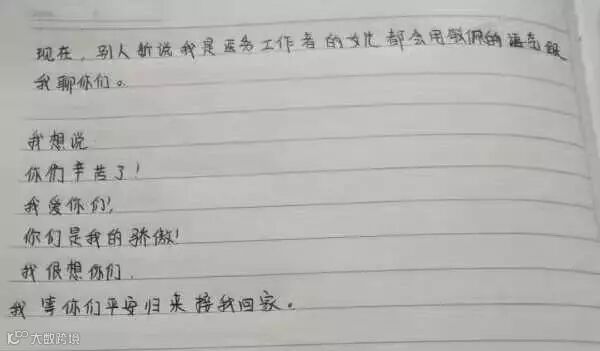 现在，别人听说我是医务工作者的女儿都会用敬佩的语气跟
我聊你们。
我想说
你們辛苦了！
我爱你们！
你们是我的骄傲！
我很想你们．
我等你们平安归来接我回家。
大数跨境